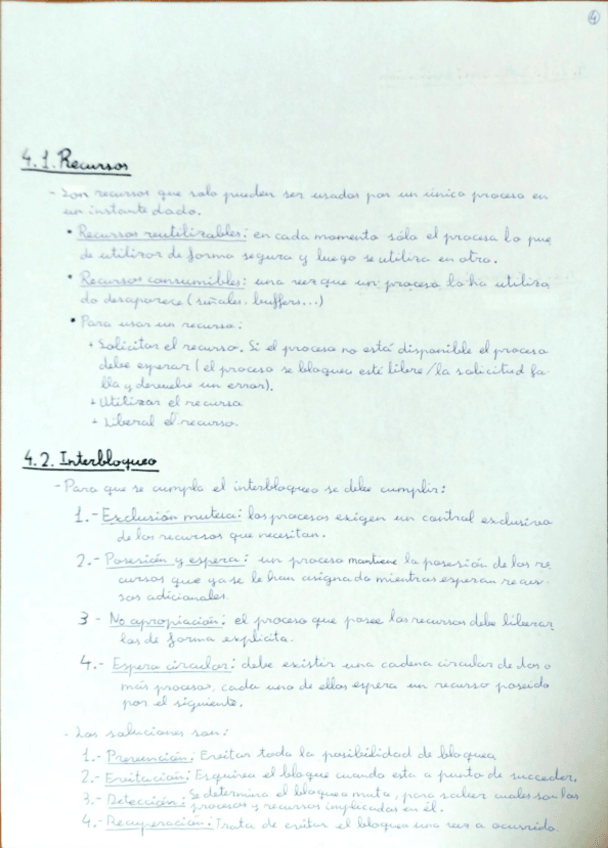 4
4.1. Recursos
- Son recursos que solo pueden ser usados por un único proceso en
un instante dado.
• Recursos reutilizables: en cada momento sólo el proceso lo pue
de utilizar de forma segura y luego se utiliza en otro.
• Recursos consumibles: una vez que un proceso lo ha utiliza
do desaparece (señales, buffers...)
• Para usar un recurso:
+ Solicitar el recurso. Si el proceso no está disponible el proceso
debe esperar (el proceso se bloquea esté libre/la solicitud fa-
lla y devuelve un error).
+ Utilizar el recurso
+ Liberal el recurso.
4.2. Interbloqueo
- Para que se cumpla el interbloqueo se debe cumplir:
1.- Exclusión mutua: los procesos exigen un control exclusivo
de los recursos que necesitan.
2.- Posesión y espera: un proceso mantiene la posesión de los re
cursos que ya se le han asignado mientras esperan recur-
sos adicionales.
3 - No apropiación: el proceso que posee los recursos debe liberar
los de forma explícita.
4.- Espera circular: debe existir una cadena circular de dos o
más procesos, cada uno de ellos espera un recurso poseido
por el siguiente.
- Las soluciones son:
1.- Prevención: Evitar toda la posibilidad de bloqueo
2.- Evitación: Esquiva el bloque cuando esta a punto de succeder.
3.- Detección: Se determina el bloqueo muta, para saber cuales son los
procesos y recursos implicados en él.
4.- Recuperación: Trata de evitar el bloqueo una vez a ocurrido.